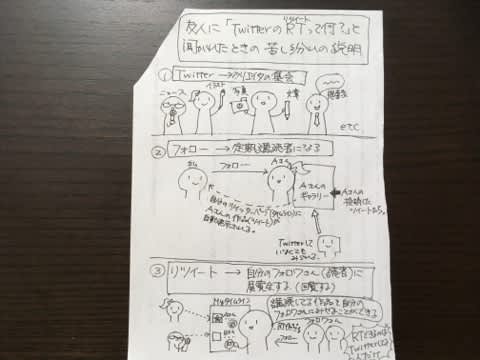 友人に「TwitterのRTって何?」と
リツイート
聞かれたときの苦し紛れの説明
① Twitter → クリエイタの集会
ニュース
イラスト
写真
文章
etc.
② フォロー → 定期購読者になる
フォロー
Aさん
Aさんの
ギャラリー
Aさんの
投稿した
ツイートたち。
自分のツイッターページ(タイムライン)に
Aさんの作品(ツイート)が
自動表示される。
Twitterして
いなくても
みられる。
③ リツイート → 自分のフォロワさん(読者)に
展覧会する。(回覧する)
Myタイムライン
購読してる作品を自分の
フォロワさんにみせることができる
フォロワさん
RT